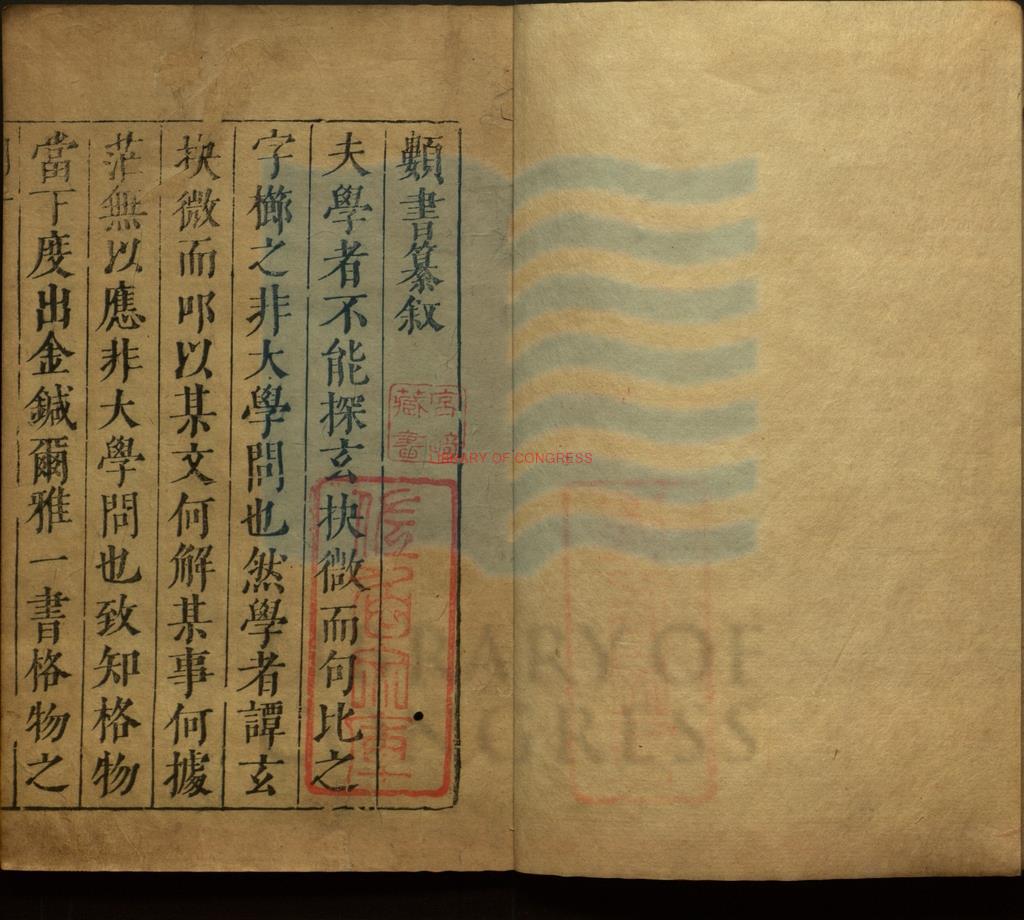 類書纂叙
夫學者不能探玄抉微而句比之
字櫛之非大學問也然學者譚玄
抉微而叩以某文何解某事何據
茫無以應非大學問也致知格物
當下度出金鍼爾雅一書格物之
宮崎
藏書
LIBRARY OF CONGRESS
RARY OF
GRESS